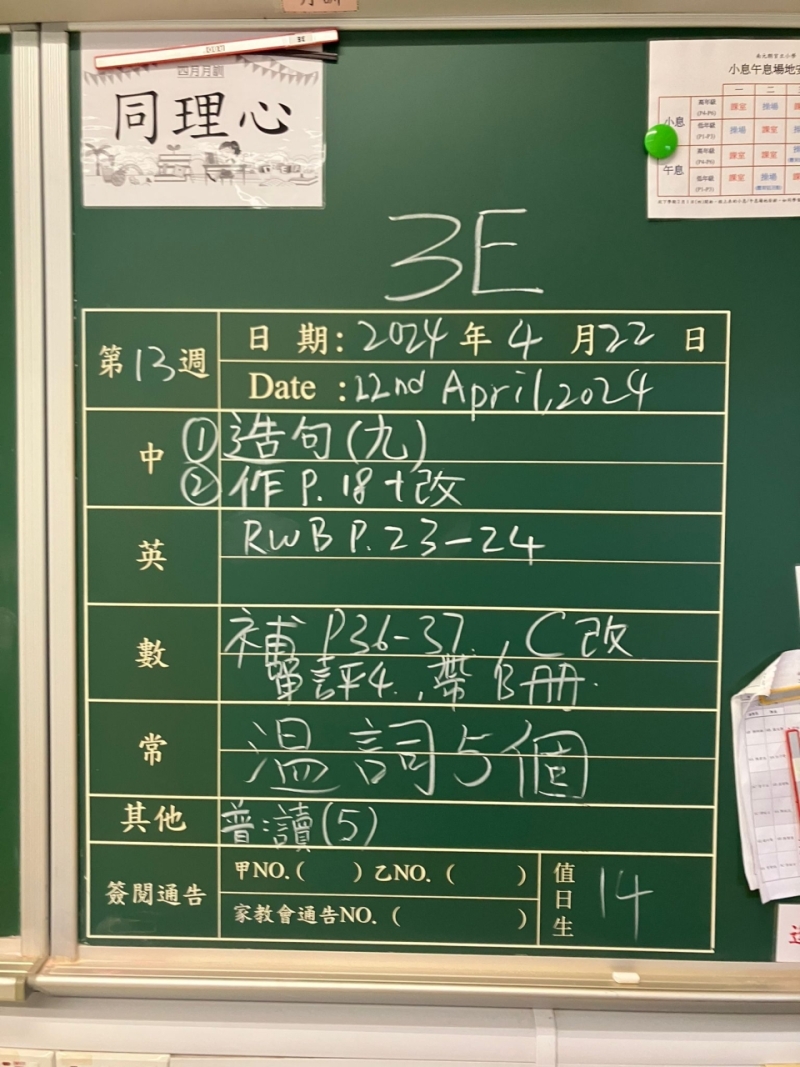 四月月訓
同理心
小息午息場地安
一 二
小息 高年級 (P4-P6) 課室 操場
低年級 (P1-P3) 操場 課室
午息 高年級 (P4-P6) 課室 課室
低年級 (P1-P3) 課室 操場
3E
第13週 日期: 2024年4月22日
Date : 22nd April, 2024
中 ① 造句(九)
② 作 P.18+改
英 RWB P.23-24
數 補 P36-37, C改
單評4, 帶B冊.
常 溫詞5個
其他 普讀(5)
簽閱通告 甲NO.( ) 乙NO.( )
家教會通告NO.( )
值日生 14